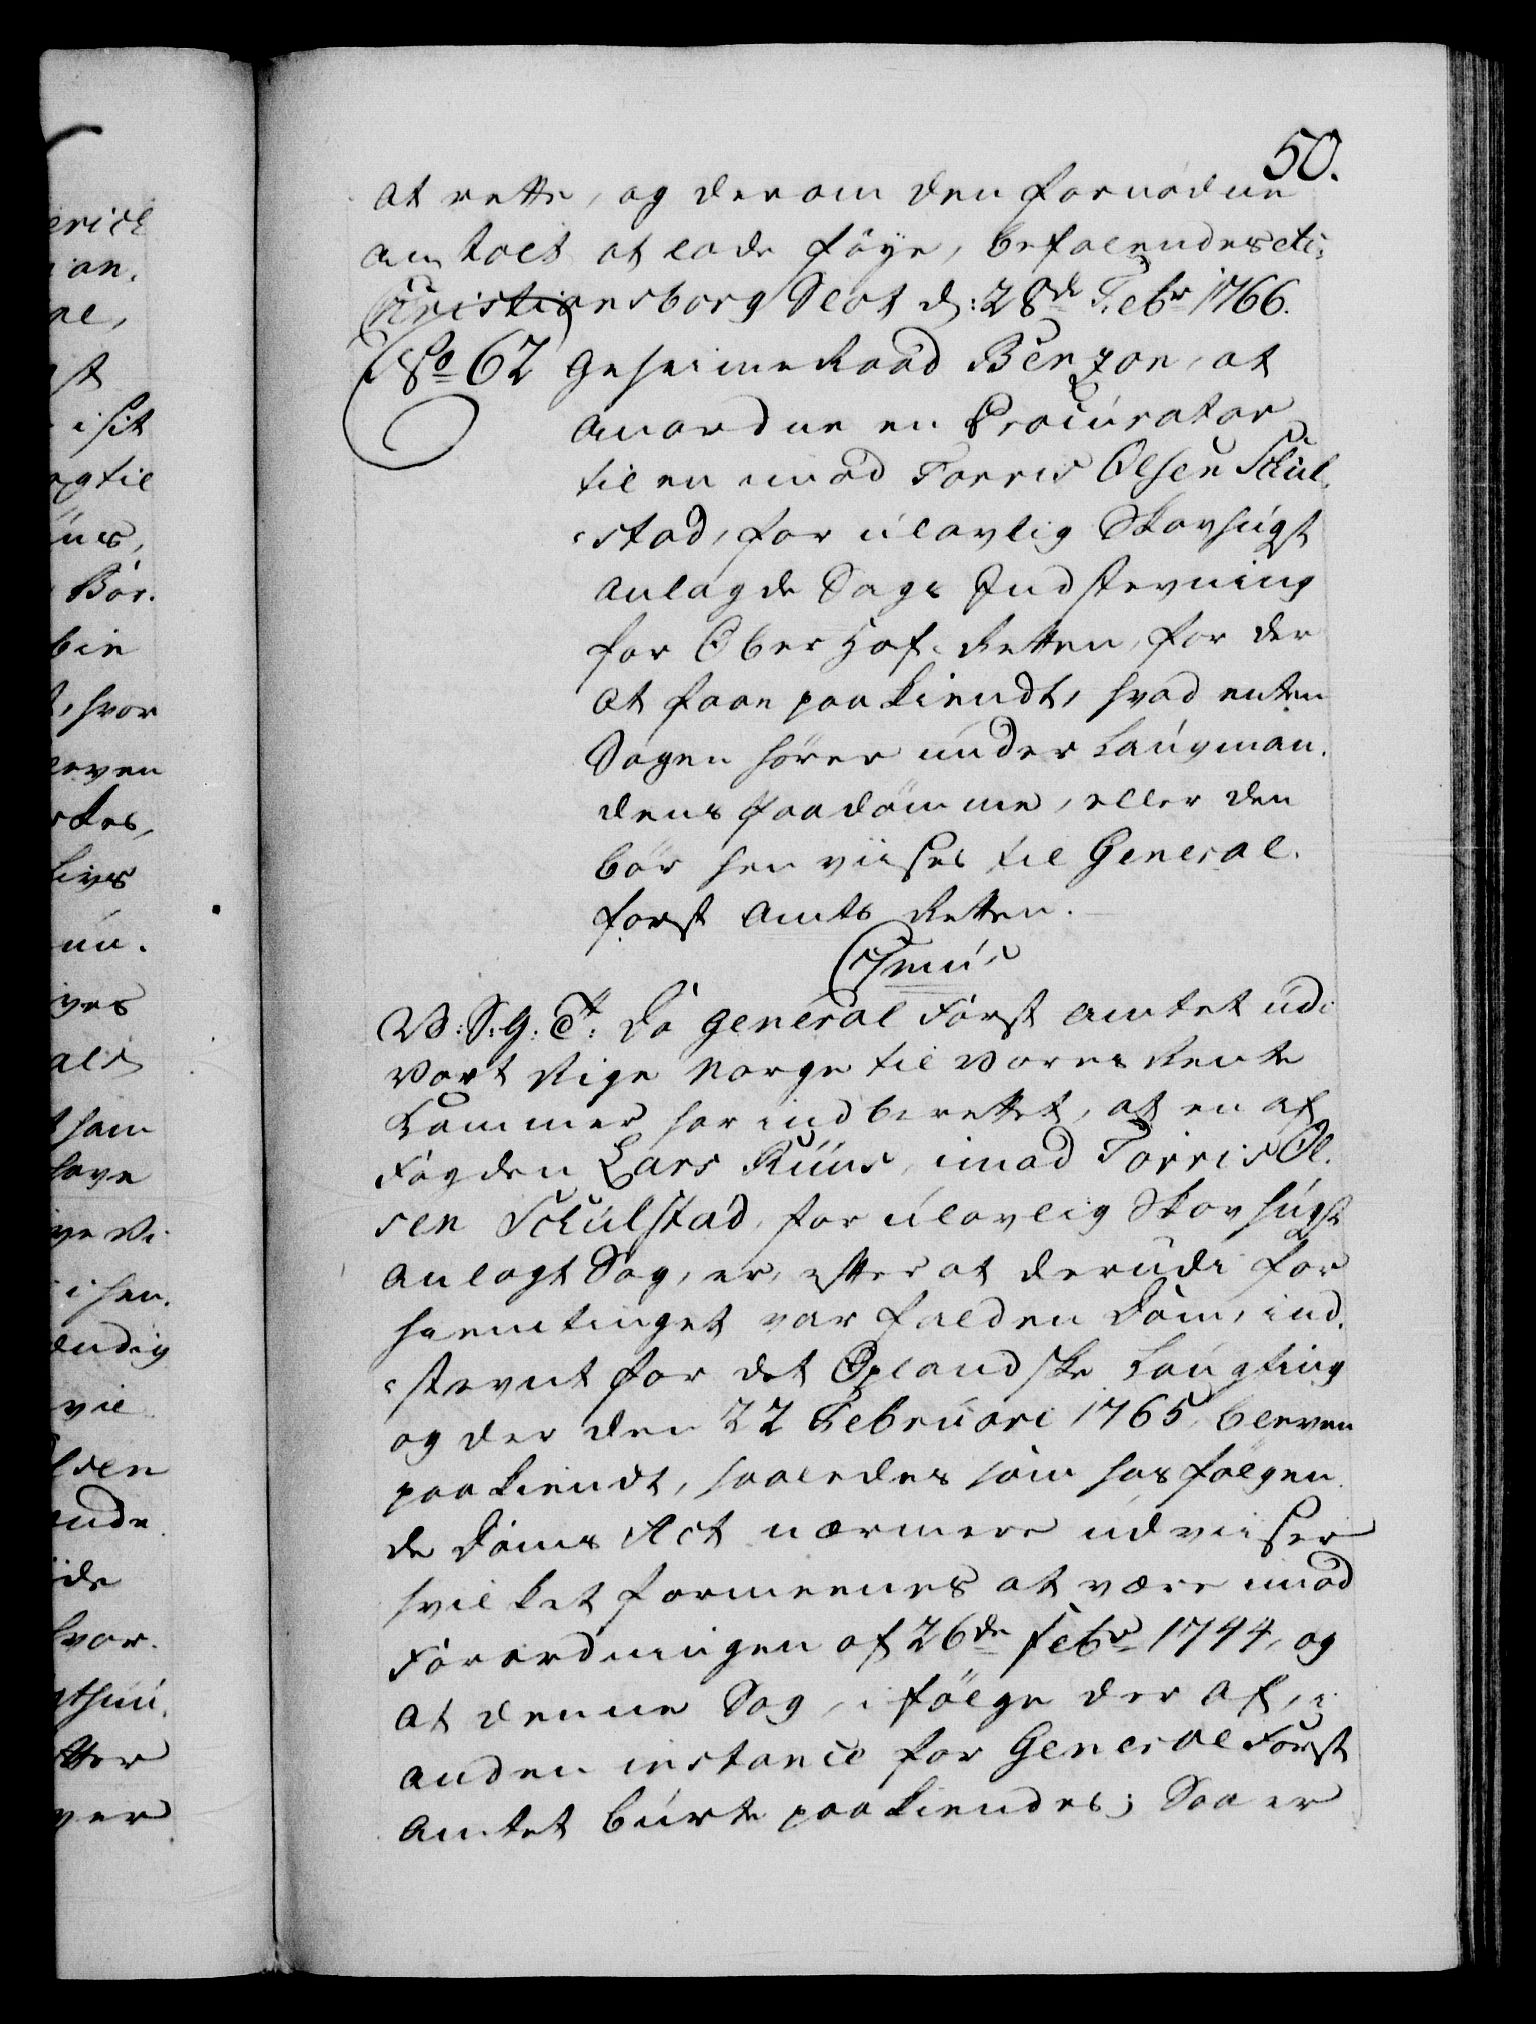 50.
at rette, og derom den fornødne
anstalt at lade føye, befalendes etc:
Christiansborg Slot d: 28de Febr 1766.
No 62 Geheime Raad Benzon, at
anordne en Procurator
til en imod Torris Olsen Schul-
-stad, for ulovlig Skovhugst
anlagde Sags Indstevning
for Ober Hof-Retten, for der
at faae paakiendt, hvad enten
Sagen hører under Laugman-
dens Paadømme, eller den
bør henviises til General-
Forst Amts Retten.
V: S: G: T: Da General Forst Amtet udi
Vort Rige Norge til Vores Rente
Kammer har indberettet, at en af
Fogden Lars Ruus, imod Torris Ol-
sen Schulstad, for ulovlig Skovhugst
anlagt Sag, er, efter at derudi for
Hiemtinget var falden Dom, ind-
-stevnt for det Oplandske Laugting
og der den 22 Februari 1765 bleven
paakiendt, saaledes som hosfølgen-
de Doms Act nærmere udviiser
hvilket formeenes at være imod
Forordningen af 26de Febr 1744, og
at denne Sag, i følge der af, i
anden instance for General Forst
Amtet burte paakiendes; Saa er
erich
ian.
ne,
st
i sit
og til
uus,
Bör-
bie
t, hvor
leven
rkes,
Livs
un.
yves
als
som
have
i hen.
endig
vil
lsen
ende
ide
hvor-
tter
ver